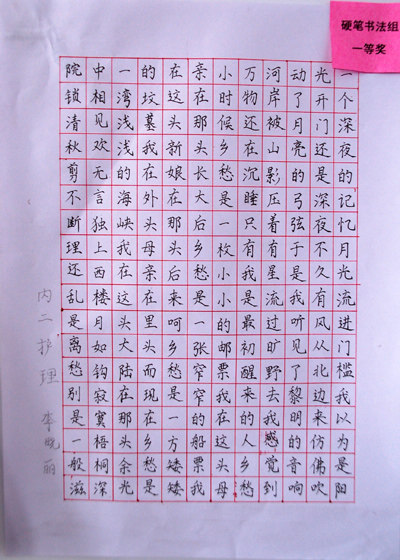 硬笔书法组
一等奖
一个深夜的记忆月光流进门槛我以为是阳
光开门还是深夜不久有风从北边来仿佛吹
动了月亮的弓弦于是我听见了黎明的音响
河岸被山影压着有星流过旷野去我感觉到
万物还在沉睡只有我是最初醒来的人乡愁
小时候乡愁是一枚小小的邮票我在这头母
亲在那头长大后乡愁是一张窄窄的船票我
在这头新娘在那头后来呵乡愁是一方矮矮
的坟墓我在外头母亲在里头而现在乡愁是
一湾浅浅的海峡我在这头大陆在那头余光
中相见欢无言独上西楼月如钩寂寞梧桐深
院锁清秋剪不断理还乱是离愁别是一般滋
内二护理 李晓丽